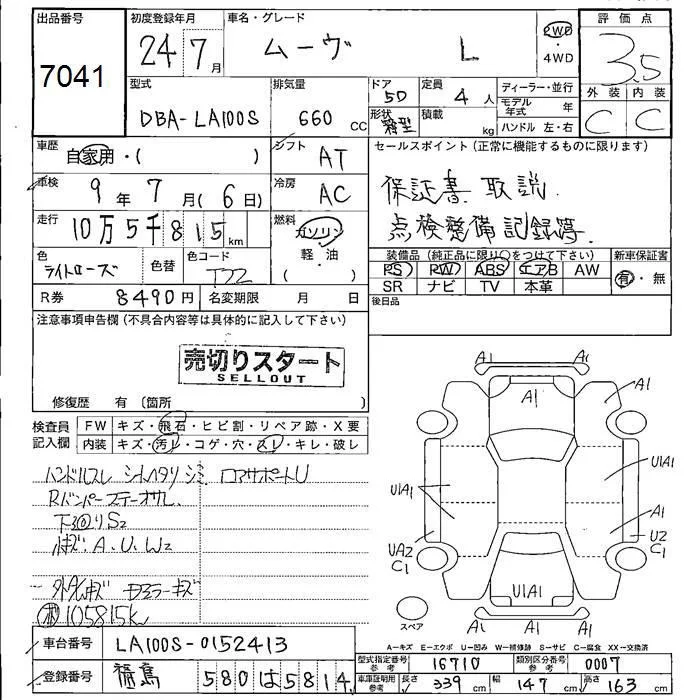 出品番号 7041
初度登録年月 24 7月
車名・グレード ムーヴ L
2WD ・ 4WD
評価点 3.5
外装 C 内装 C
型式 DBA-LA100S
排気量 660 CC
ドア 5D
形状 箱型
定員 4人
積載 kg
ディーラー・並行
モデル年式 年
ハンドル 左・右
車歴 自家用・( )
シフト AT
セールスポイント (正常に機能するものに限ります)
保証書 取説
点検整備記録簿
車検 9年7月(6日)
冷房 AC
走行 10万5千815km
燃料 ガソリン 軽・油 ( )
色 ライトローズ
色替
色コード T32
装備品 (純正品に限り○をつけて下さい)
PS PW ABS エアB AW
SR ナビ TV 本革
新車保証書 有・無
R券 8490円
名変期限 月 日
後日品
注意事項申告欄 (不具合内容等は具体的に記入して下さい)
売切りスタート
SELLOUT
修復歴 有 (箇所 )
検査員記入欄
FW キズ・飛石・ヒビ割・リペア跡・X要
内装 キズ・汚れ・コゲ・穴・スレ・キレ・破レ
ハンドルスレ シートヘタリ シミ ロアサポートU
Rバンパーステーオサレ
下回りS2
小キズ.A.U.W2
105815K
A1 A1
A1
A1
U1A1
U1A1
A1
UA2 C1
U2 C1
U1A1
A1 A1 A1
スペア
A-キズ E-エクボ U-凹み W-補修跡 S-サビ C-腐食 XX-交換済
車台番号 LA100S-0152413
登録番号 福島 580 は 5814
型式指定番号参考 16710
類別区分番号参考 0007
車庫証明用参考 長さ 339cm 幅 147cm 高さ 163cm